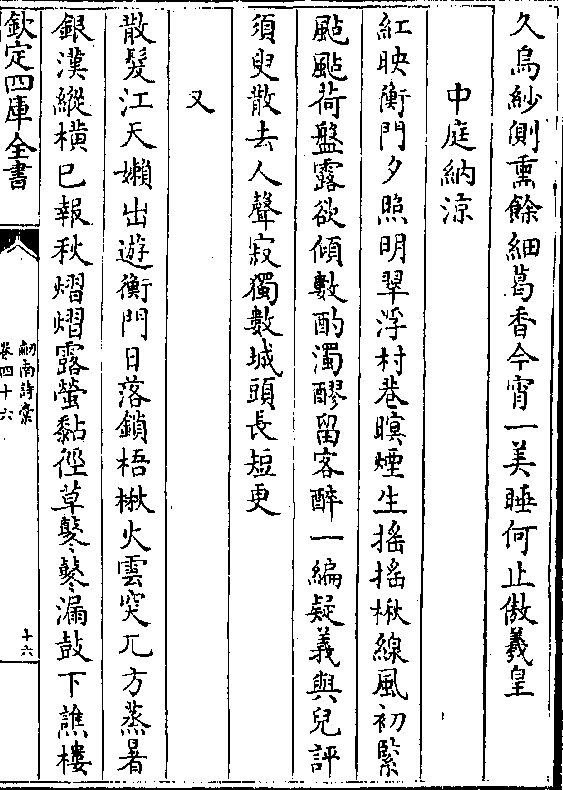 久烏紗側熏餘細葛香今宵一美睡何止傲羲皇
中庭納涼
紅映衡門夕照明翠浮村巷暝煙生搖搖楸線風初緊
颭颭荷盤露欲傾數酌濁醪留客醉一編疑義與兒評
須臾散去人聲寂獨數城頭長短更
又
散髮江天嬾出遊衡門日落鎖梧楸火雲突兀方蒸暑
銀漢縱橫已報秋熠熠露螢黏徑草鼕鼕漏鼓下譙樓
欽定四庫全書
劒南詩稾
卷四十六
十六